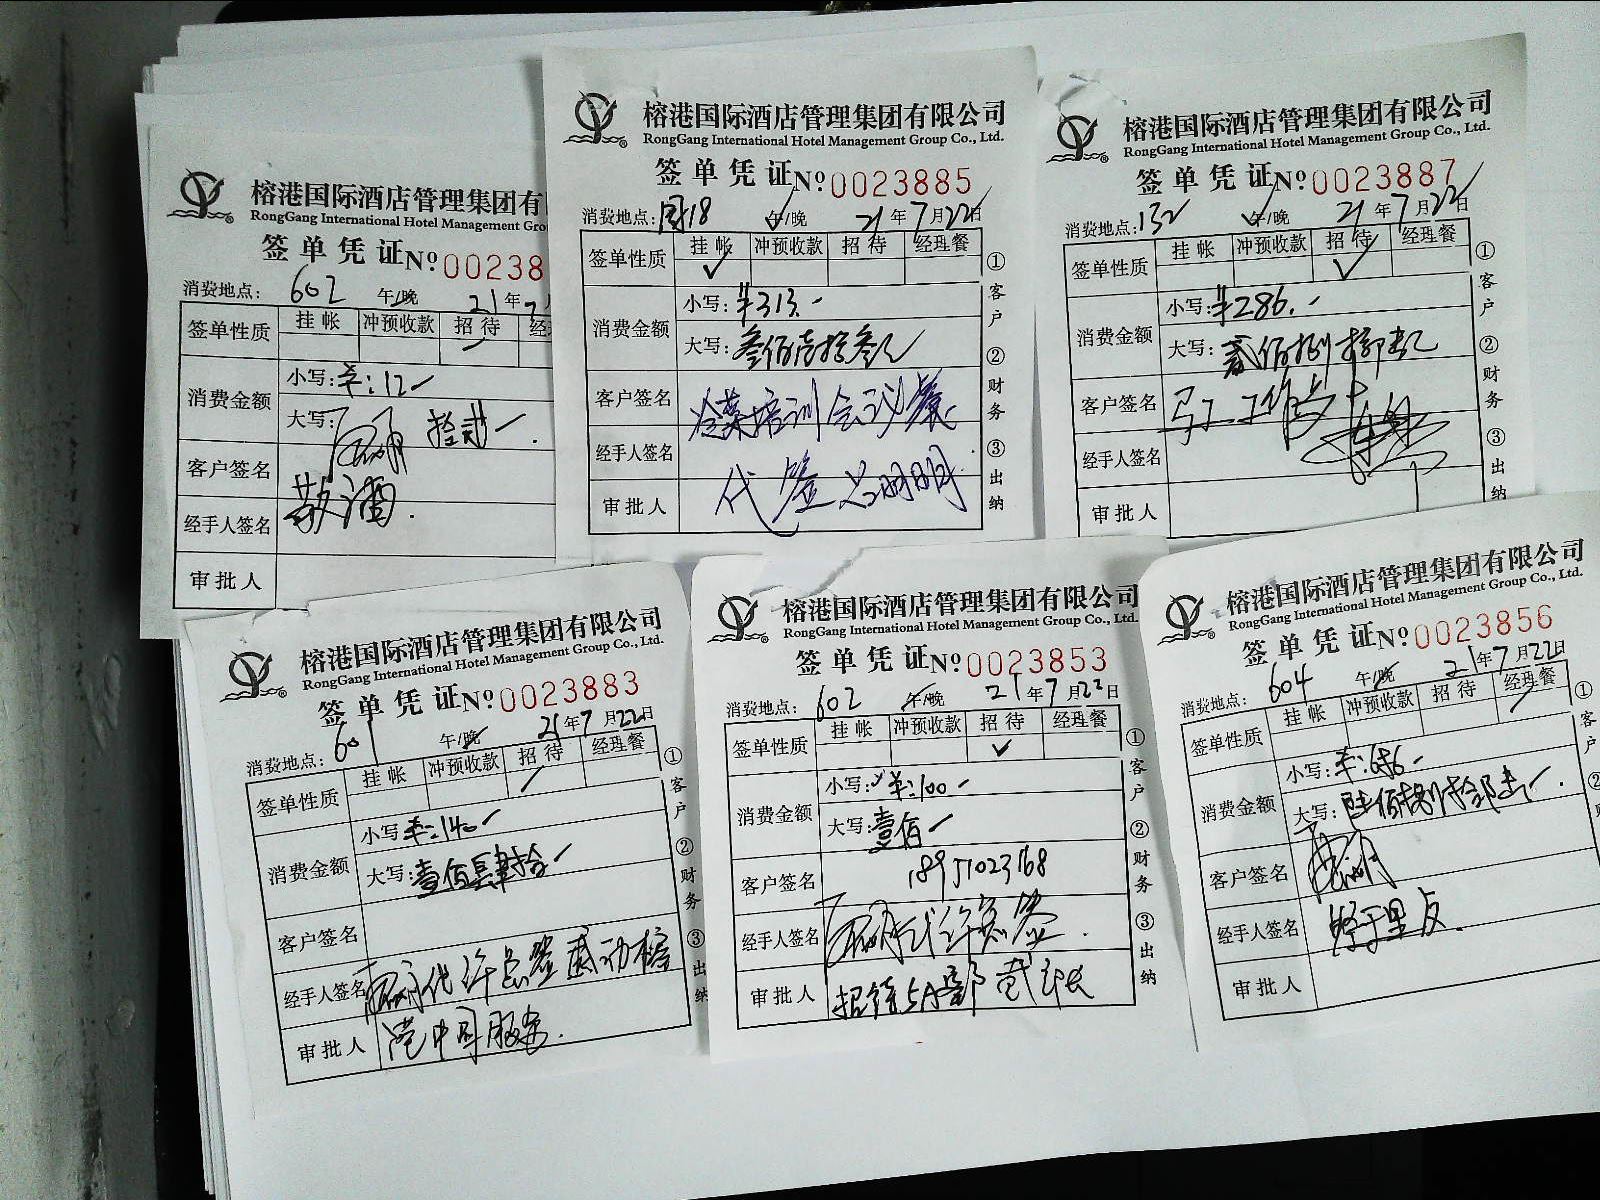 榕港国际酒店管理集团有
RongGang International Hotel Management Gro
签单凭证 Nº 00238
消费地点: 602 午/晚 21年7
签单性质 挂帐 冲预收款 招待 经
消费金额 小写: ¥:12-
大写: 拾贰-.
客户签名
敬酒.
经手人签名
审批人
榕港国际酒店管理集团有限公司
RongGang International Hotel Management Group Co., Ltd.
签单凭证 Nº 0023885
消费地点: 国18 午/晚 21年7月22日
签单性质 挂帐 冲预收款 招待 经理餐
✓
消费金额 小写: ¥313.-
大写: 叁佰壹拾叁元
客户签名 冷菜培训会议餐
经手人签名
代签 明明
审批人
①客户 ②财务 ③出纳
榕港国际酒店管理集团有限公司
RongGang International Hotel Management Group Co., Ltd.
签单凭证 Nº 0023887
消费地点: 132 午/晚 21年7月22日
签单性质 挂帐 冲预收款 招待 经理餐
✓
消费金额 小写: ¥286.-
大写: 贰佰捌拾陆元
客户签名 员工工作
经手人签名
审批人
①客户 ②财务 ③出纳
榕港国际酒店管理集团有限公司
RongGang International Hotel Management Group Co., Ltd.
签单凭证 Nº 0023883
消费地点: 601 午/晚 21年7月22日
签单性质 挂帐 冲预收款 招待 经理餐
消费金额 小写: ¥:140-
大写: 壹佰肆拾-
客户签名
经手人签名 代许总签 榕
审批人 港中国服务.
①客户 ②财务 ③出纳
榕港国际酒店管理集团有限公司
RongGang International Hotel Management Group Co., Ltd.
签单凭证 Nº 0023853
消费地点: 602 午/晚 21年7月22日
签单性质 挂帐 冲预收款 招待 经理餐
✓
消费金额 小写: ¥:100-
大写: 壹佰-
客户签名 18951023168
经手人签名 代许总签.
审批人 招待 部
①客户 ②财务 ③出纳
榕港国际酒店管理集团有限公司
RongGang International Hotel Management Group Co., Ltd.
签单凭证 Nº 0023856
消费地点: 604 午/晚 21年7月22日
签单性质 挂帐 冲预收款 招待 经理餐
消费金额 小写: ¥:686-
大写: 陆佰捌拾陆元-.
客户签名
经手人签名
审批人
①客户 ②财